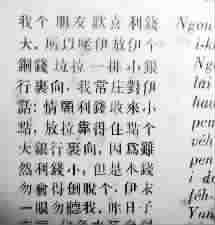 我个朋友歡喜利錢 Ngoo
大，所以㧯伊放伊个 i-k
銅錢垃拉一排小銀 Ng
行裏向，我常庄對伊 lai
話：情願利錢收來小 ha
點，放拉靠得住點个 pen
大銀行裏向，因爲雖 veh
然利錢小，但是本錢 pen
勿會得倒脫个．伊末 i d
一眼勿聽我，昨日子 féh-